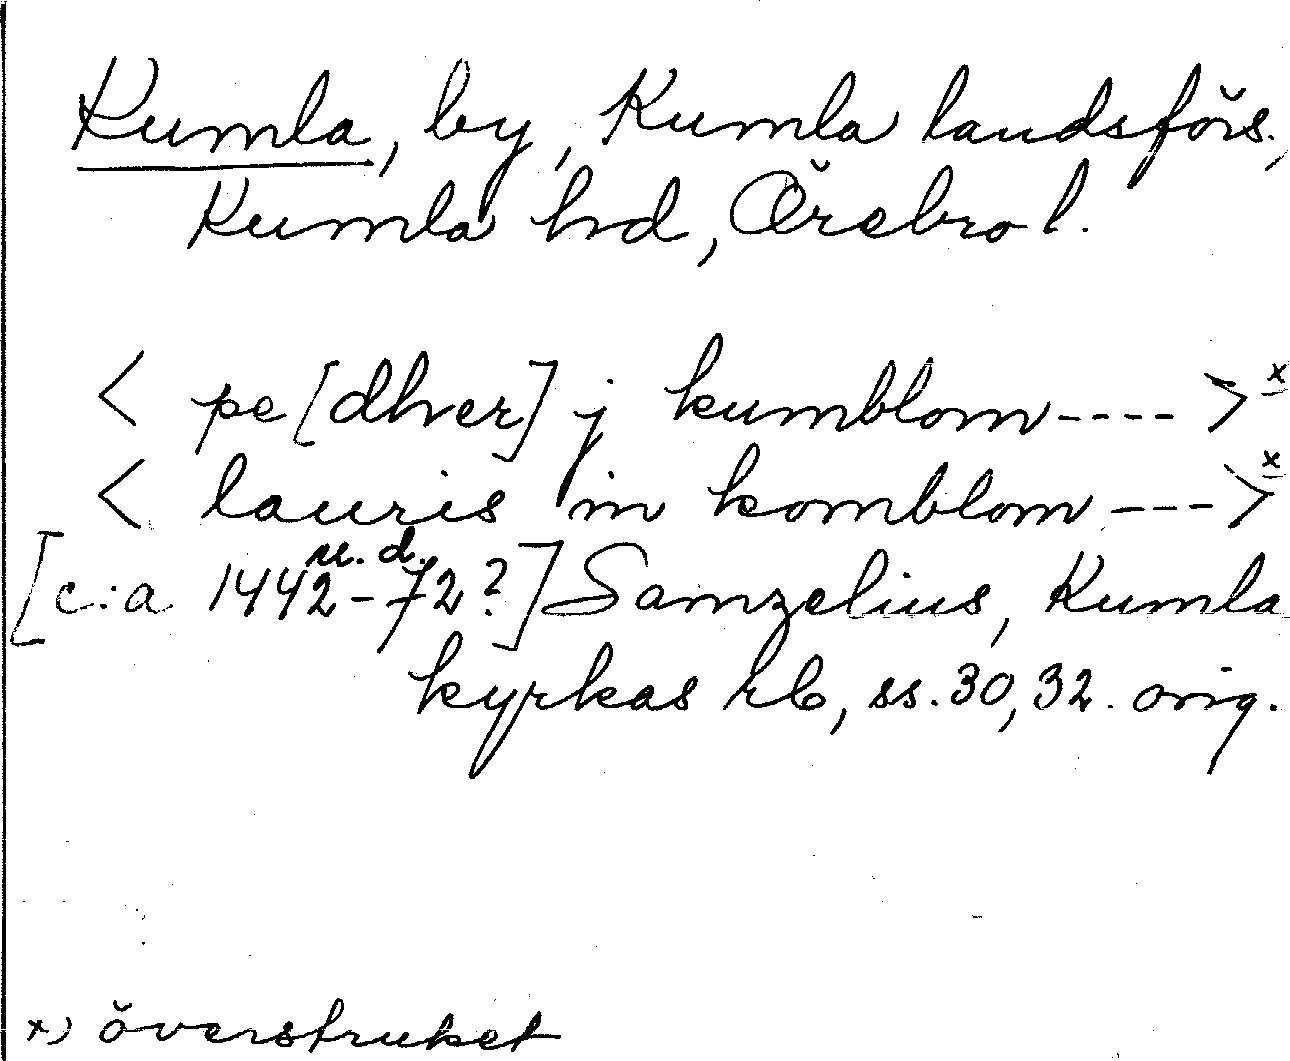 Kumla, by, Kumla landsförs.,
Kumla hd, Örebro l.
< pe[dhver] j kumblom ---- >x
< lauris in komblom --- >x
u. d.
[c:a 1442-72?] Samzelius, Kumla
kyrkas rb, ss. 30, 32. orig.
x) överstruket